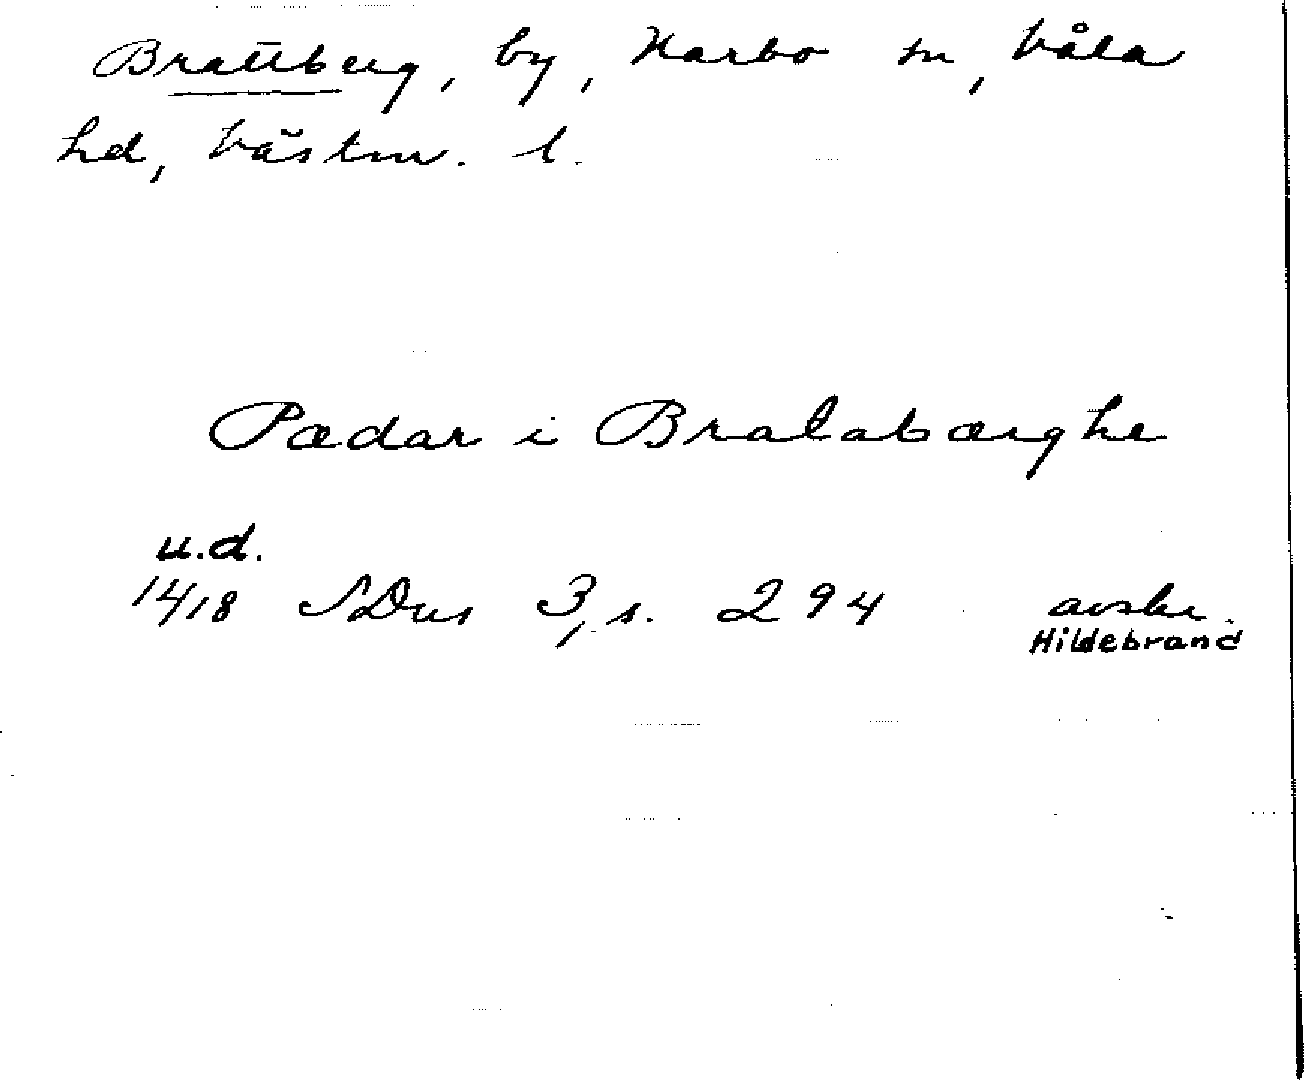 Brattberg, by, Harbo sn, Våla
hd, Västm. l.
Pædar i Bratabærghe
u.d.
1418 SDns 3, s. 294 avskr.
Hildebrand